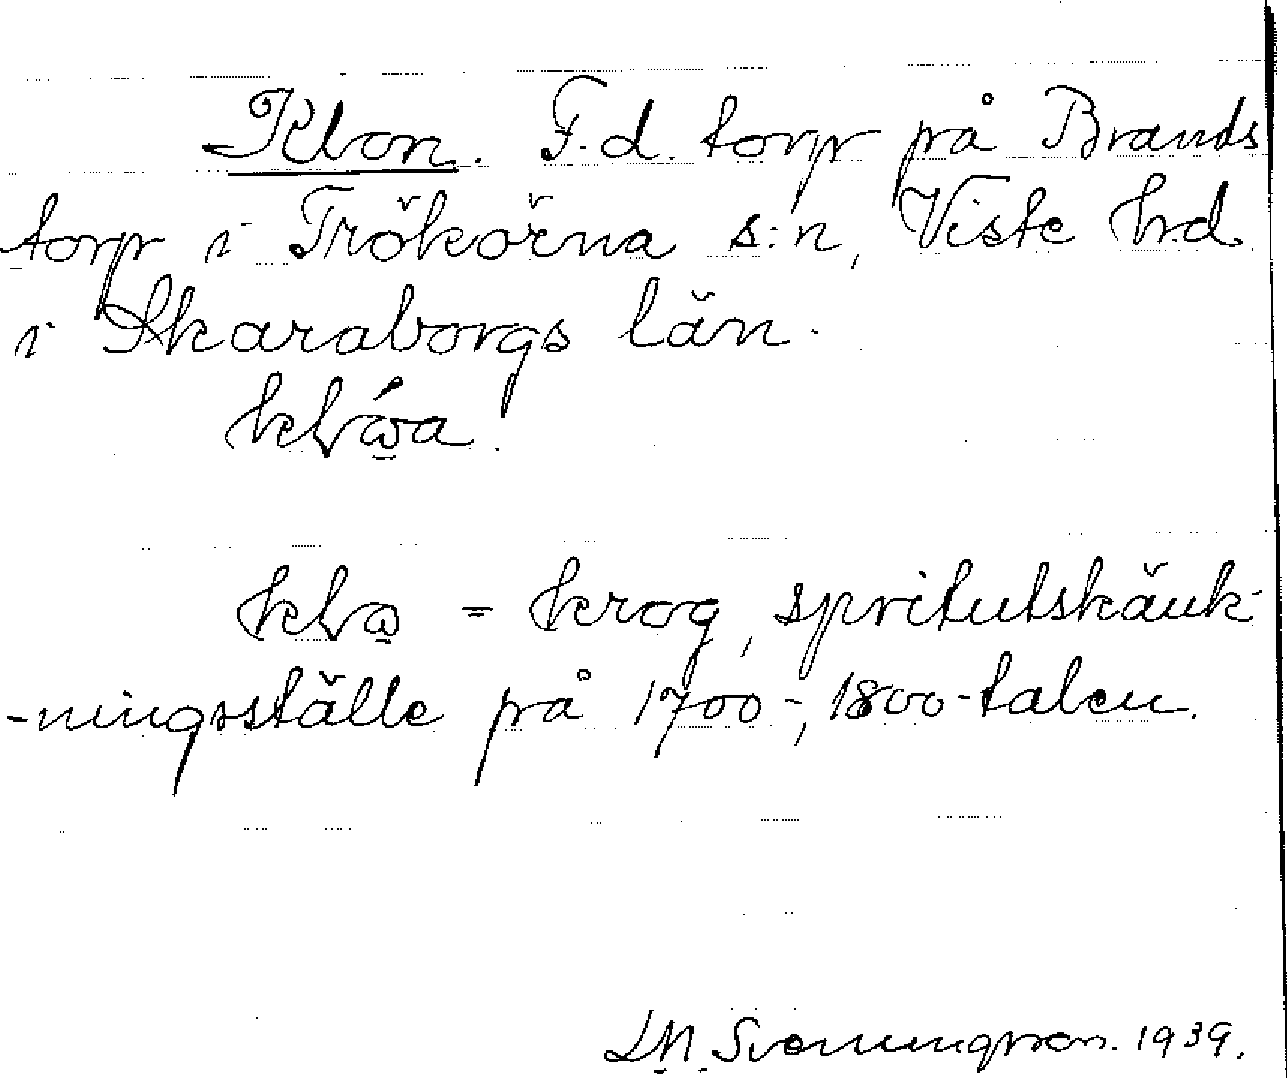 Klon. F.d. torp på Brands
torp i Trökörna s:n, Viste hd
i Skaraborgs län.
= krog, spritutskänk-
-ningsställe på 1700-, 1800-talen.
Svenningsson. 1939.